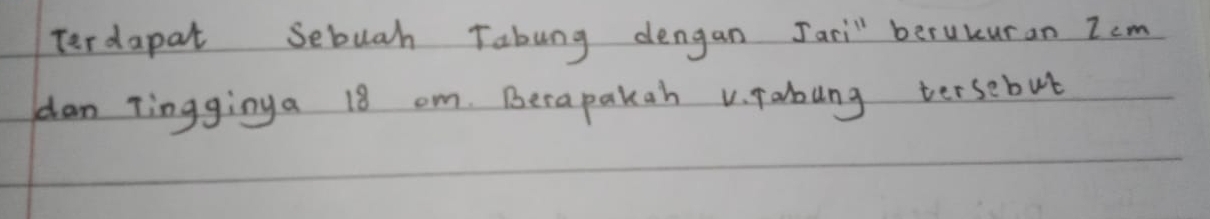 Terdapat Sebuah Tabung dengan Jari" berukuran 7 cm
dan Tingginya 18 cm. Berapakah V.Tabung tersebut